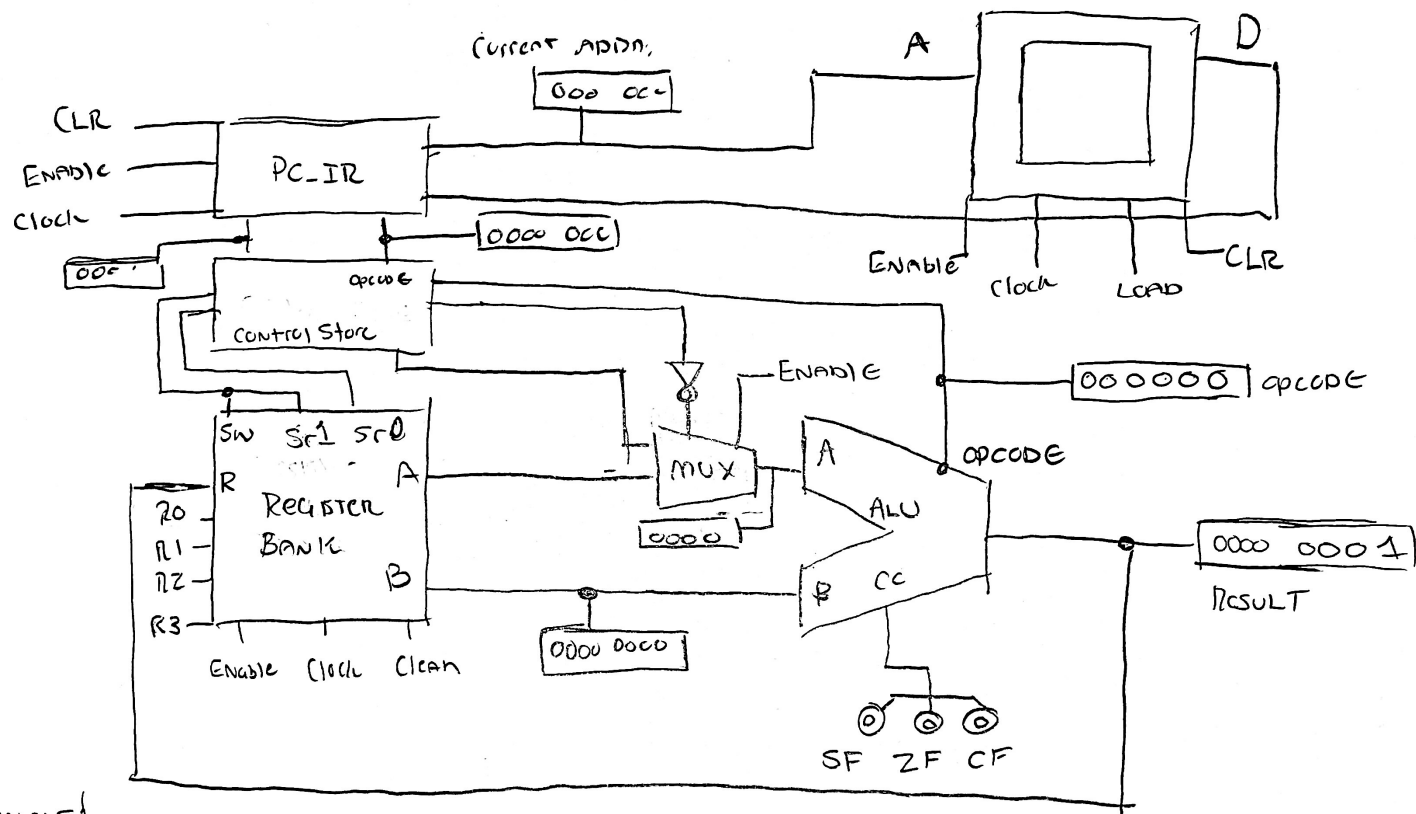 Current ADDR.
000 000
A
D
CLR
ENABLE
Clock
PC_IR
0000 000
Enable
Clock
LOAD
CLR
OPCODE
Control Store
ENABLE
000000
OPCODE
SW Sr1 Sr0
R
A
REGISTER
BANK
B
R0
R1
R2
R3
Enable Clock Clear
MUX
0000
0000 0000
A
OPCODE
ALU
B
CC
0000 0001
RESULT
SF ZF CF